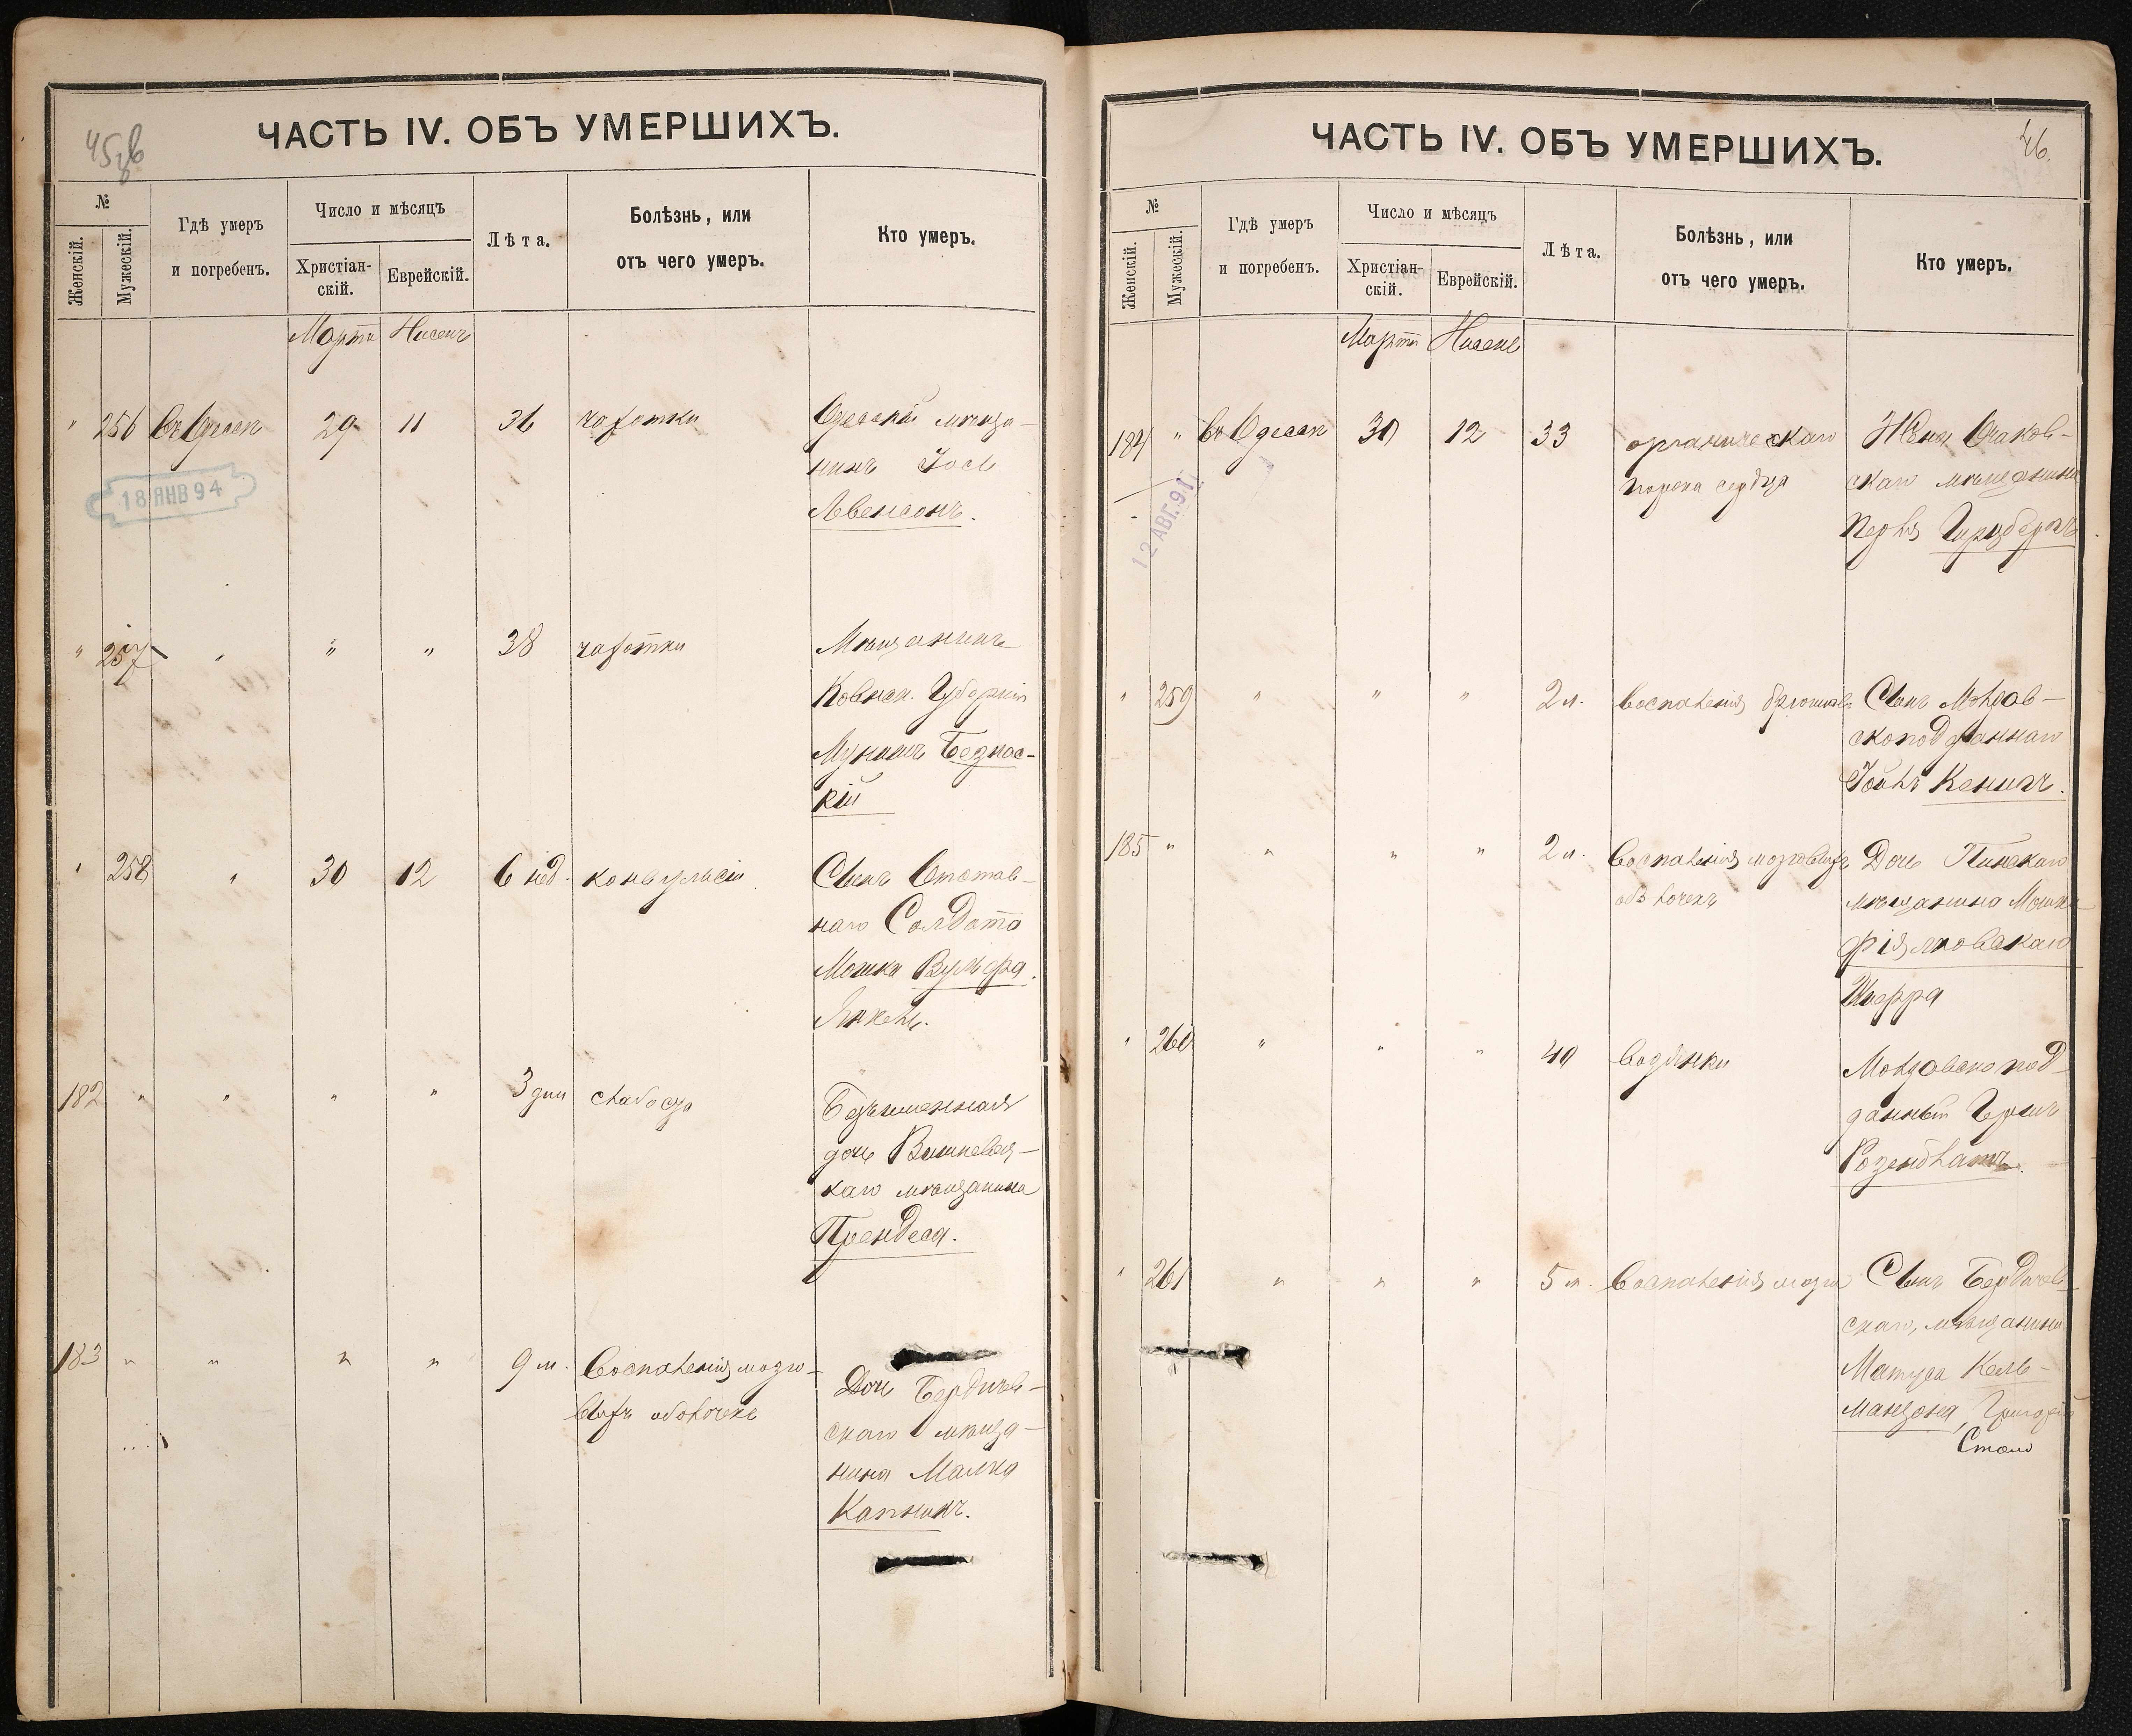 45об
ЧАСТЬ IV. ОБЪ УМЕРШИХЪ.
№
Женскій.
Мужескій.
Гдѣ умеръ
и погребенъ.
Число и мѣсяцъ
Христіан-
скій.
Еврейскій.
Лѣта.
Болѣзнь, или
отъ чего умеръ.
Кто умеръ.
Марта Нисенъ
" 256 въ Одессѣ 29 11 36 чахотки Одесскій мѣща-
нинъ Іось
Левенсонъ.
18 ЯНВ 94
" 257 " " " 38 чахотки Мѣщанинъ
Ковнск. Губерніи
Безнос-
кій
" 258 " 30 12 6 нед. конвульсіи Сынъ Отстав-
наго Солдата
Мошка Вульфа
Янкель.
182 " " " " 3 дни слабости Безъименная
дочь Вишневец-
каго мѣщанина
Прендеса.
183 " " " " 9 м. Воспаленія мозго-
выхъ оболочекъ
Дочь Бердичев-
скаго мѣща-
нина Малка
Капникъ.
46.
ЧАСТЬ IV. ОБЪ УМЕРШИХЪ.
№
Женскій.
Мужескій.
Гдѣ умеръ
и погребенъ.
Число и мѣсяцъ
Христіан-
скій.
Еврейскій.
Лѣта.
Болѣзнь, или
отъ чего умеръ.
Кто умеръ.
Марта Нисенъ
184 " въ Одессѣ 30 12 33 органическаго Жена Очаков-
порока сердца скаго мѣщанина
Перля Гирцбергъ
12 АВГ. 91
" 259 " " " 2 л. Воспаленія брюшины Сынъ Молдав-
скоподданнаго
Кенигъ.
185 " " " " 2 л. Воспаленія мозговыхъ Дочь Пинскаго
оболочекъ мѣщанина Мошка
Фіялковскаго
Шефра
" 260 " " " 40 Водянки Молдавскопод-
данный Гершъ
Розенблатъ.
" 261 " " " 5 м. Воспаленія мозга Сынъ Бердичев-
скаго, мѣщанина
Матуса Кель-
манзона, Григорій